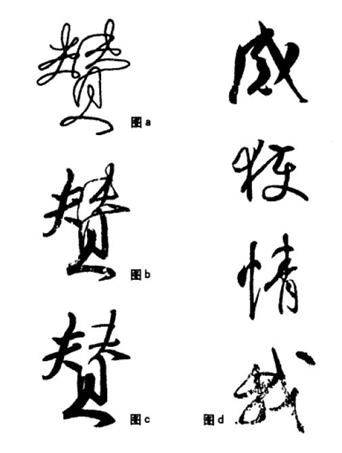 赞
图a
赞
图b
赞
图c
威
情
我
图d